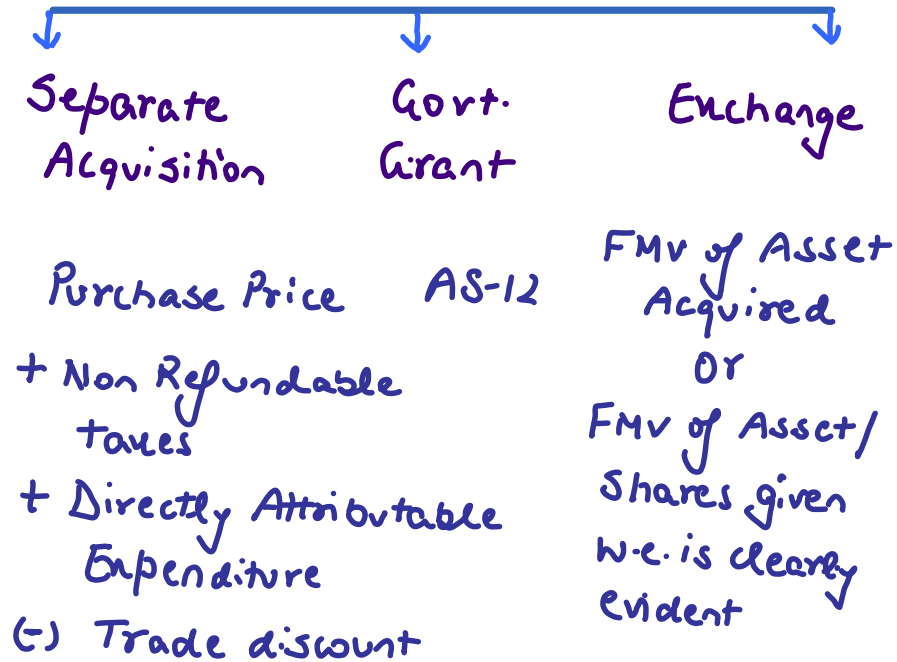 Separate
Acquisition
Purchase Price
+ Non Refundable
taxes
+ Directly Attributable
Expenditure
(-) Trade discount
Govt.
Grant
AS-12
Exchange
FMV of Asset
Acquired
or
FMV of Asset/
Shares given
w.e. is clearly
evident